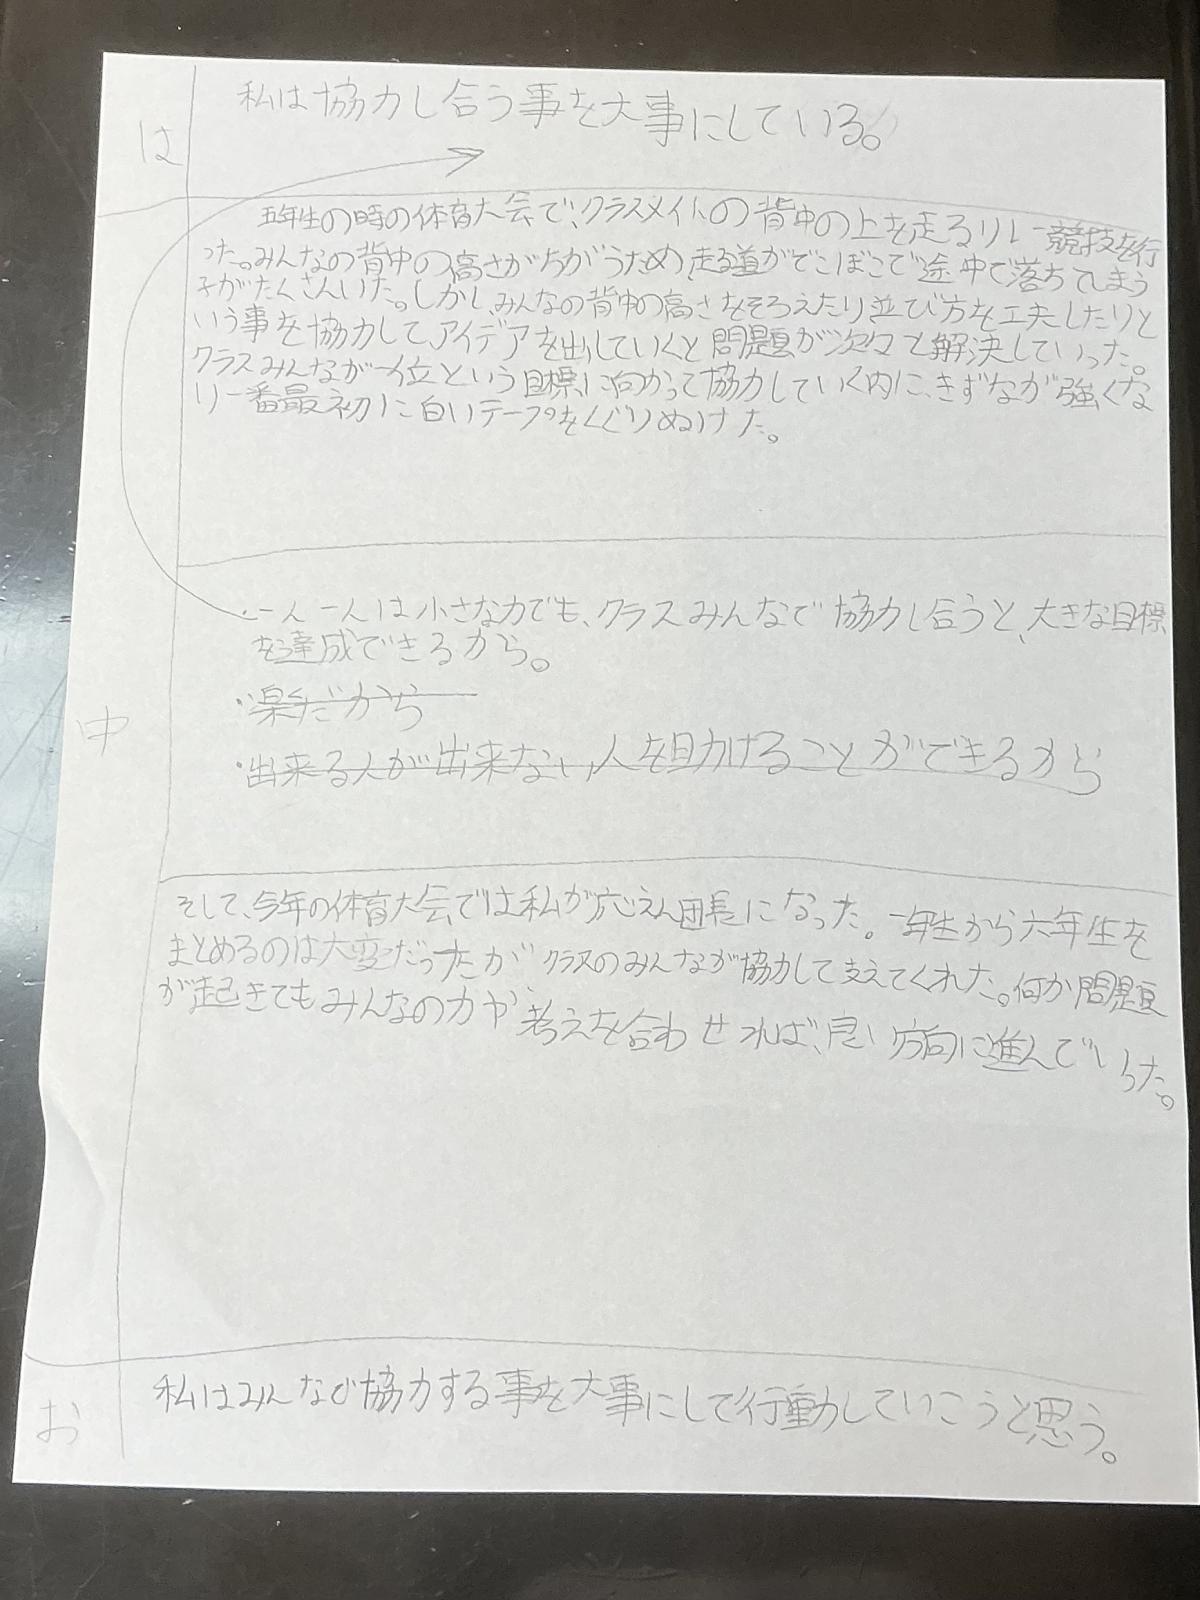 は
私は協力し合う事を大事にしている。
五年生の時の体育大会で、クラスメイトの背中の上を走るリレー競技を行
った。みんなの背中の高さがちがうため、走る道がでこぼこで途中で落ちてしまう
子がたくさんいた。しかし、みんなの背中の高さをそろえたり並び方を工夫したりと
いう事を協力して、アイデアを出していくと問題が次々と解決していった。
クラスみんなが一位という目標に向かって協力していく内に、きずなが強くな
り一番最初に白いテープをくぐりぬけた。
中
・一人一人は小さな力でも、クラスみんなで協力し合うと、大きな目標
を達成できるから。
・楽だから
・出来る人が出来ない人を助けることができるから
そして、今年の体育大会では私が応えん団長になった。一年生から六年生を
まとめるのは大変だったがクラスのみんなが協力して支えてくれた。何か問題
が起きてもみんなの力や考えを合わせれば、良い方向に進んでいった。
お
私はみんなで協力する事を大事にして行動していこうと思う。